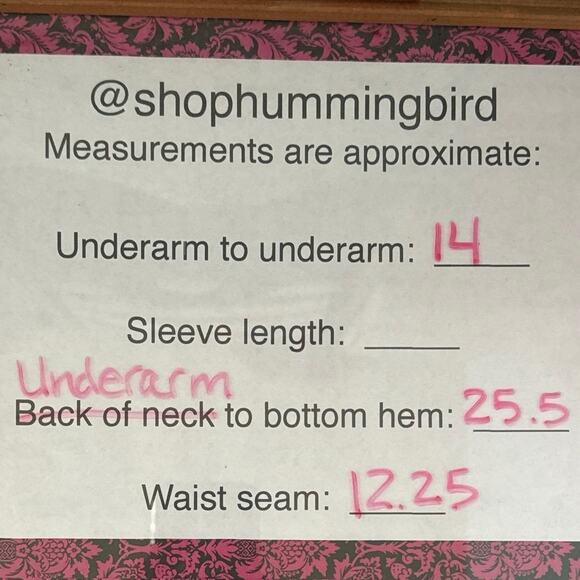 @shophummingbird
Measurements are approximate:
Underarm to underarm: 14
Sleeve length: ____
Underarm
Back of neck to bottom hem: 25.5
Waist seam: 12.25